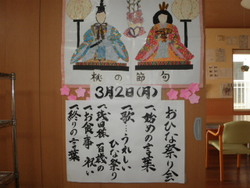 桃の節句
3月2日(月)
おひな祭り会
一、始めの言葉
一、歌…うれしい
ひな祭り
一、お食事
一、終りの言葉